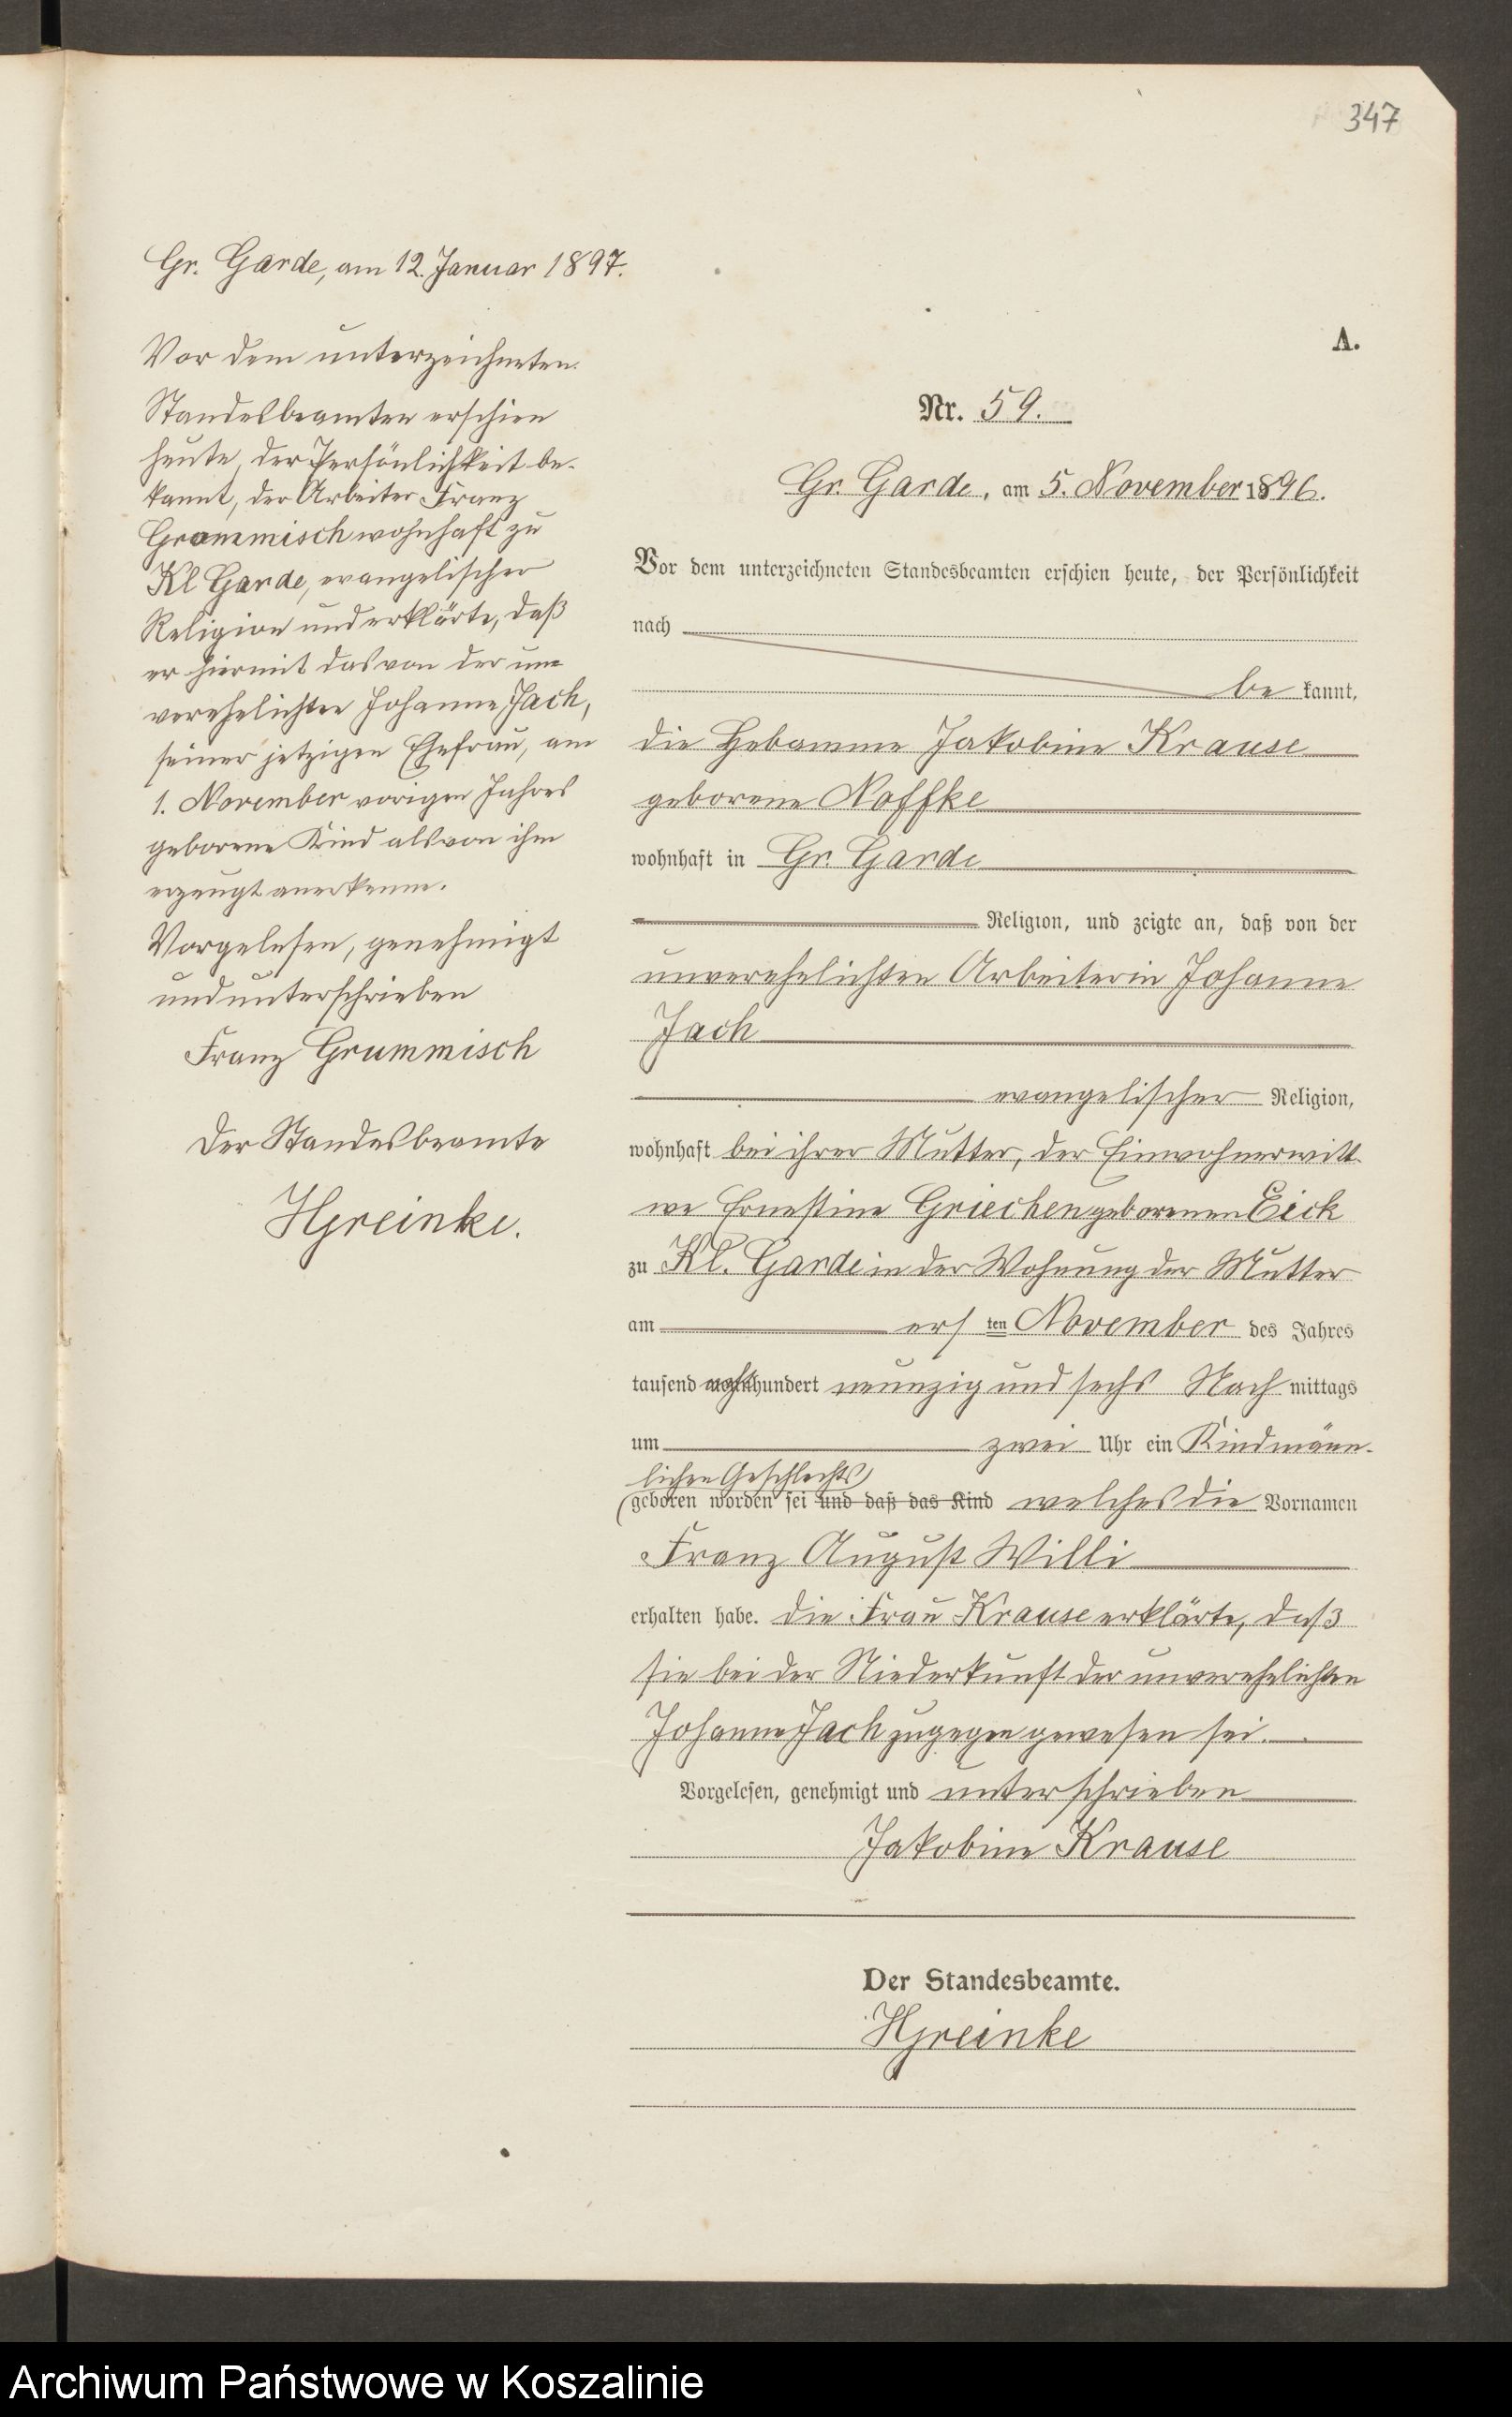 347
Gr. Garde, am 12. Januar 1897.
Vor dem unterzeichneten
Standesbeamten erschien
heute, der Persönlichkeit be-
kannt, der Arbeiter Franz
Grammisch wohnhaft zu
Kl Garde, evangelischer
Religion und erklärte, daß
er hiermit das von der un
verehelichten Johanne Jach,
seiner jetzigen Ehefrau, am
1. November vorigen Jahres
geborene Kind als von ihm
erzeugt anerkenne.
Vorgelesen, genehmigt
und unterschrieben
Franz Grummisch
Der Standesbeamte
HGreinke.
A.
Nr. 59.
Gr. Garde, am 5. November 1896.
Vor dem unterzeichneten Standesbeamten erschien heute, der Persönlichkeit
nach
be kannt,
die Hebamme Jakobine Krause
geborene Noffke
wohnhaft in Gr. Garde
Religion, und zeigte an, daß von der
unverehelichten Arbeiterin Johanne
Jach
evangelischer Religion,
wohnhaft bei ihrer Mutter, der Einwohnerwitt-
we Ernestine Griechen geborenen Eick
zu Kl. Garde in der Wohnung der Mutter
am ers ten November des Jahres
tausend achthundert neunzig und sechs Nach mittags
um zwei Uhr ein Kind männ-
lichen Geschlechts
geboren worden sei und daß das Kind welches die Vornamen
Franz August Willi
erhalten habe. Die Frau Krause erklärte, daß
sie bei der Niederkunft der unverehelichten
Johanne Jach zugegen gewesen sei.
Vorgelesen, genehmigt und unterschrieben
Jakobine Krause
Der Standesbeamte.
HGreinke
Archiwum Państwowe w Koszalinie